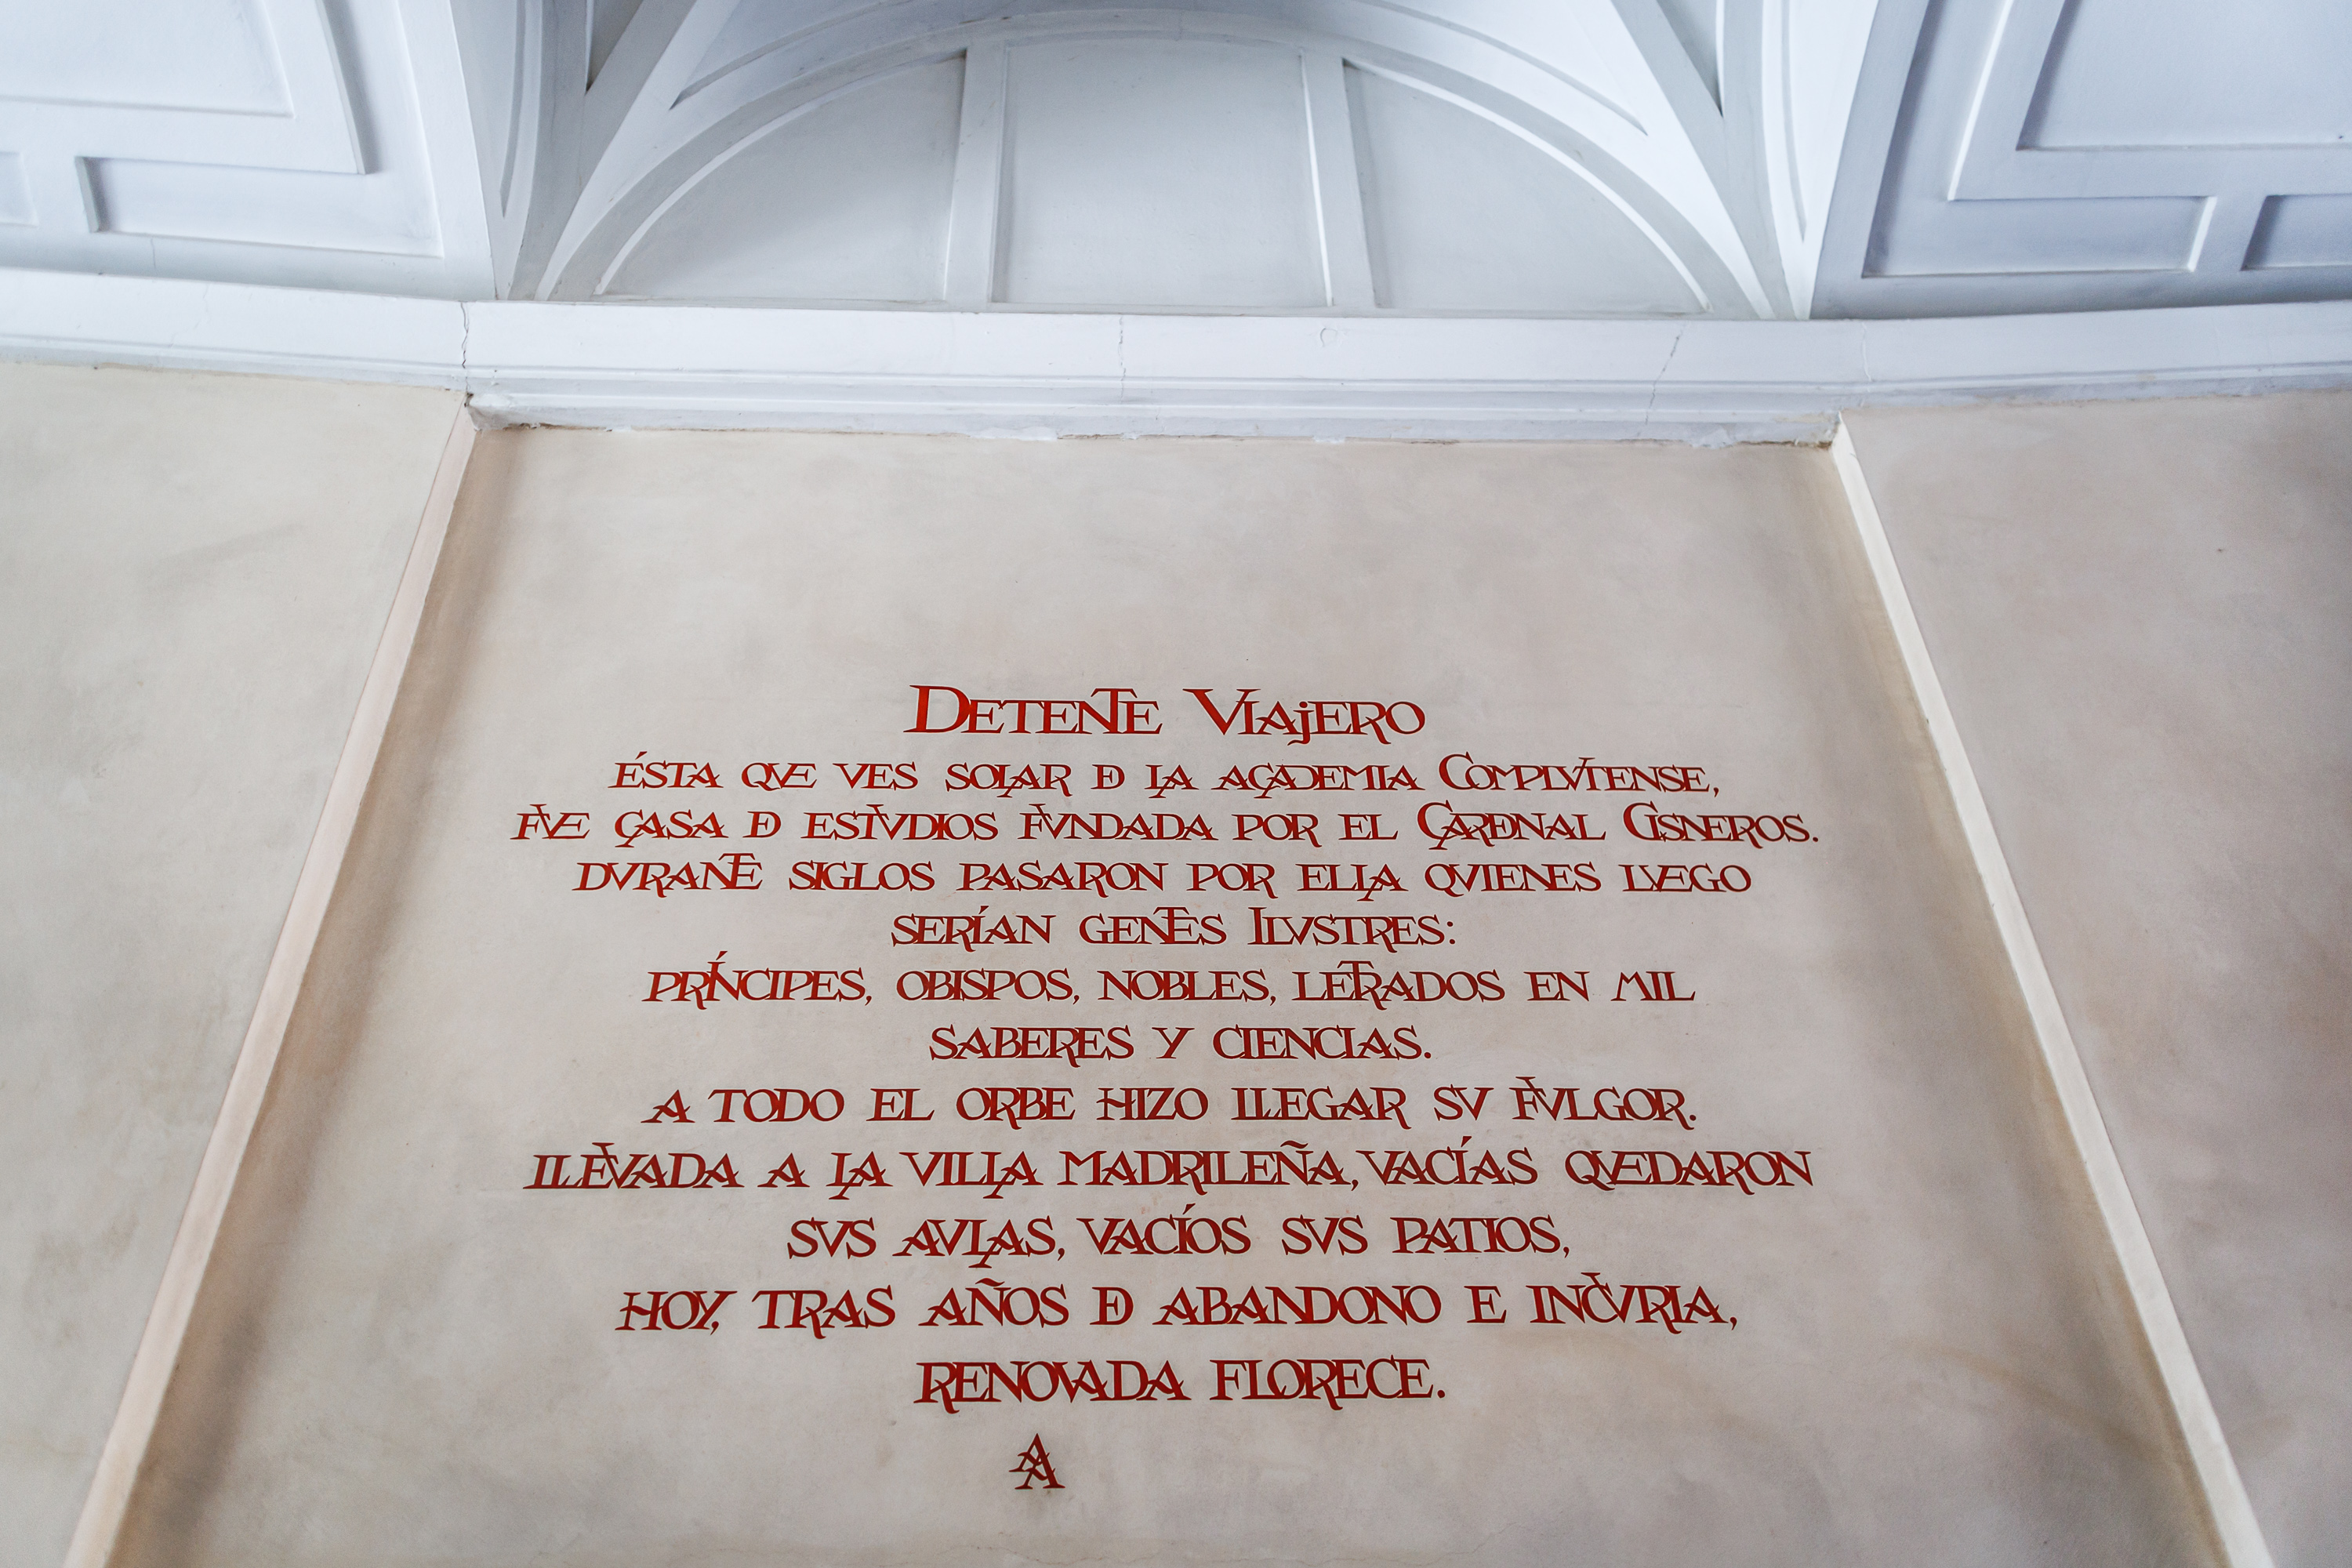 DETENTE VIAJERO
ÉSTA QVE VES SOLAR DE LA ACADEMIA COMPLVTENSE,
FVE CASA DE ESTVDIOS FVNDADA POR EL CARDENAL CISNEROS.
DVRANTE SIGLOS PASARON POR ELLA QVIENES LVEGO
SERÍAN GENTES ILVSTRES:
PRÍNCIPES, OBISPOS, NOBLES, LETRADOS EN MIL
SABERES Y CIENCIAS.
A TODO EL ORBE HIZO LLEGAR SV FVLGOR.
LLEVADA A LA VILLA MADRILEÑA, VACÍAS QVEDARON
SVS AVLAS, VACÍOS SVS PATIOS,
HOY, TRAS AÑOS DE ABANDONO E INCVRIA,
RENOVADA FLORECE.